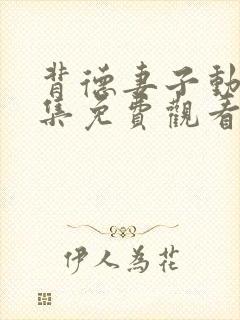 背德妻子動
集免費觀看
伊人為花